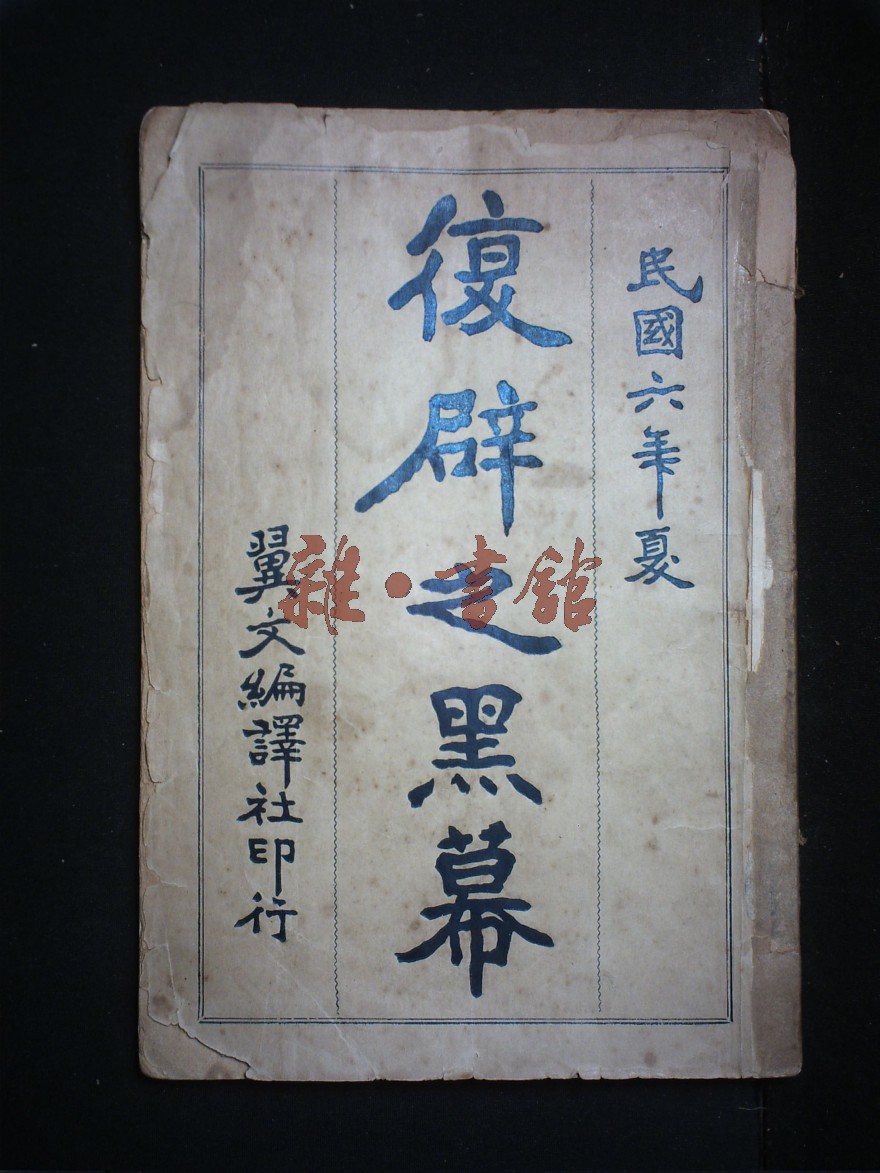 民國六年夏
復辟之黑幕
翼文編譯社印行
雜·書館